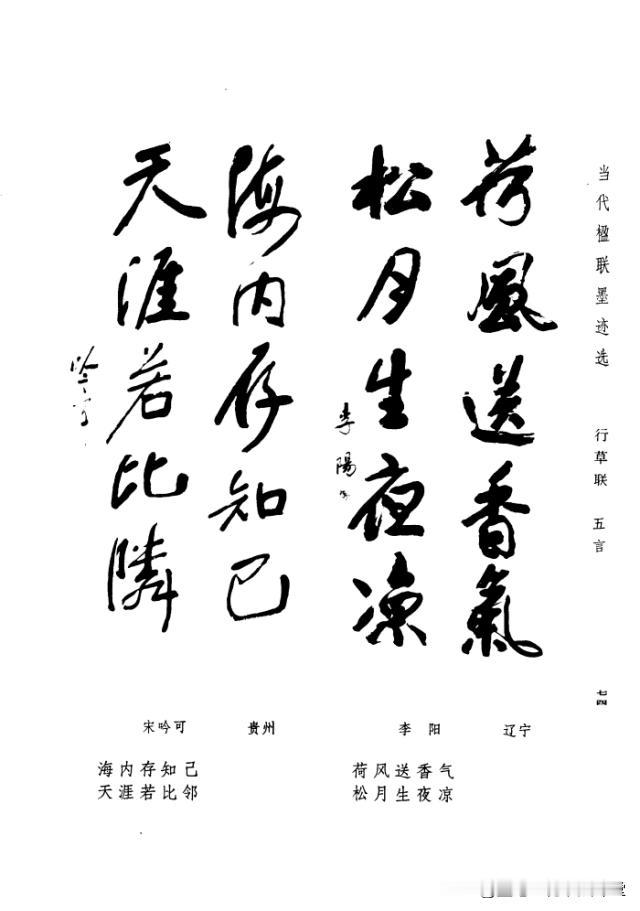 当代楹联墨迹选
行草联 五言
七四
荷風送香氣
松月生夜凉
李陽
海内存知己
天涯若比隣
吟可
辽宁
李阳
荷风送香气
松月生夜凉
贵州
宋吟可
海内存知己
天涯若比邻